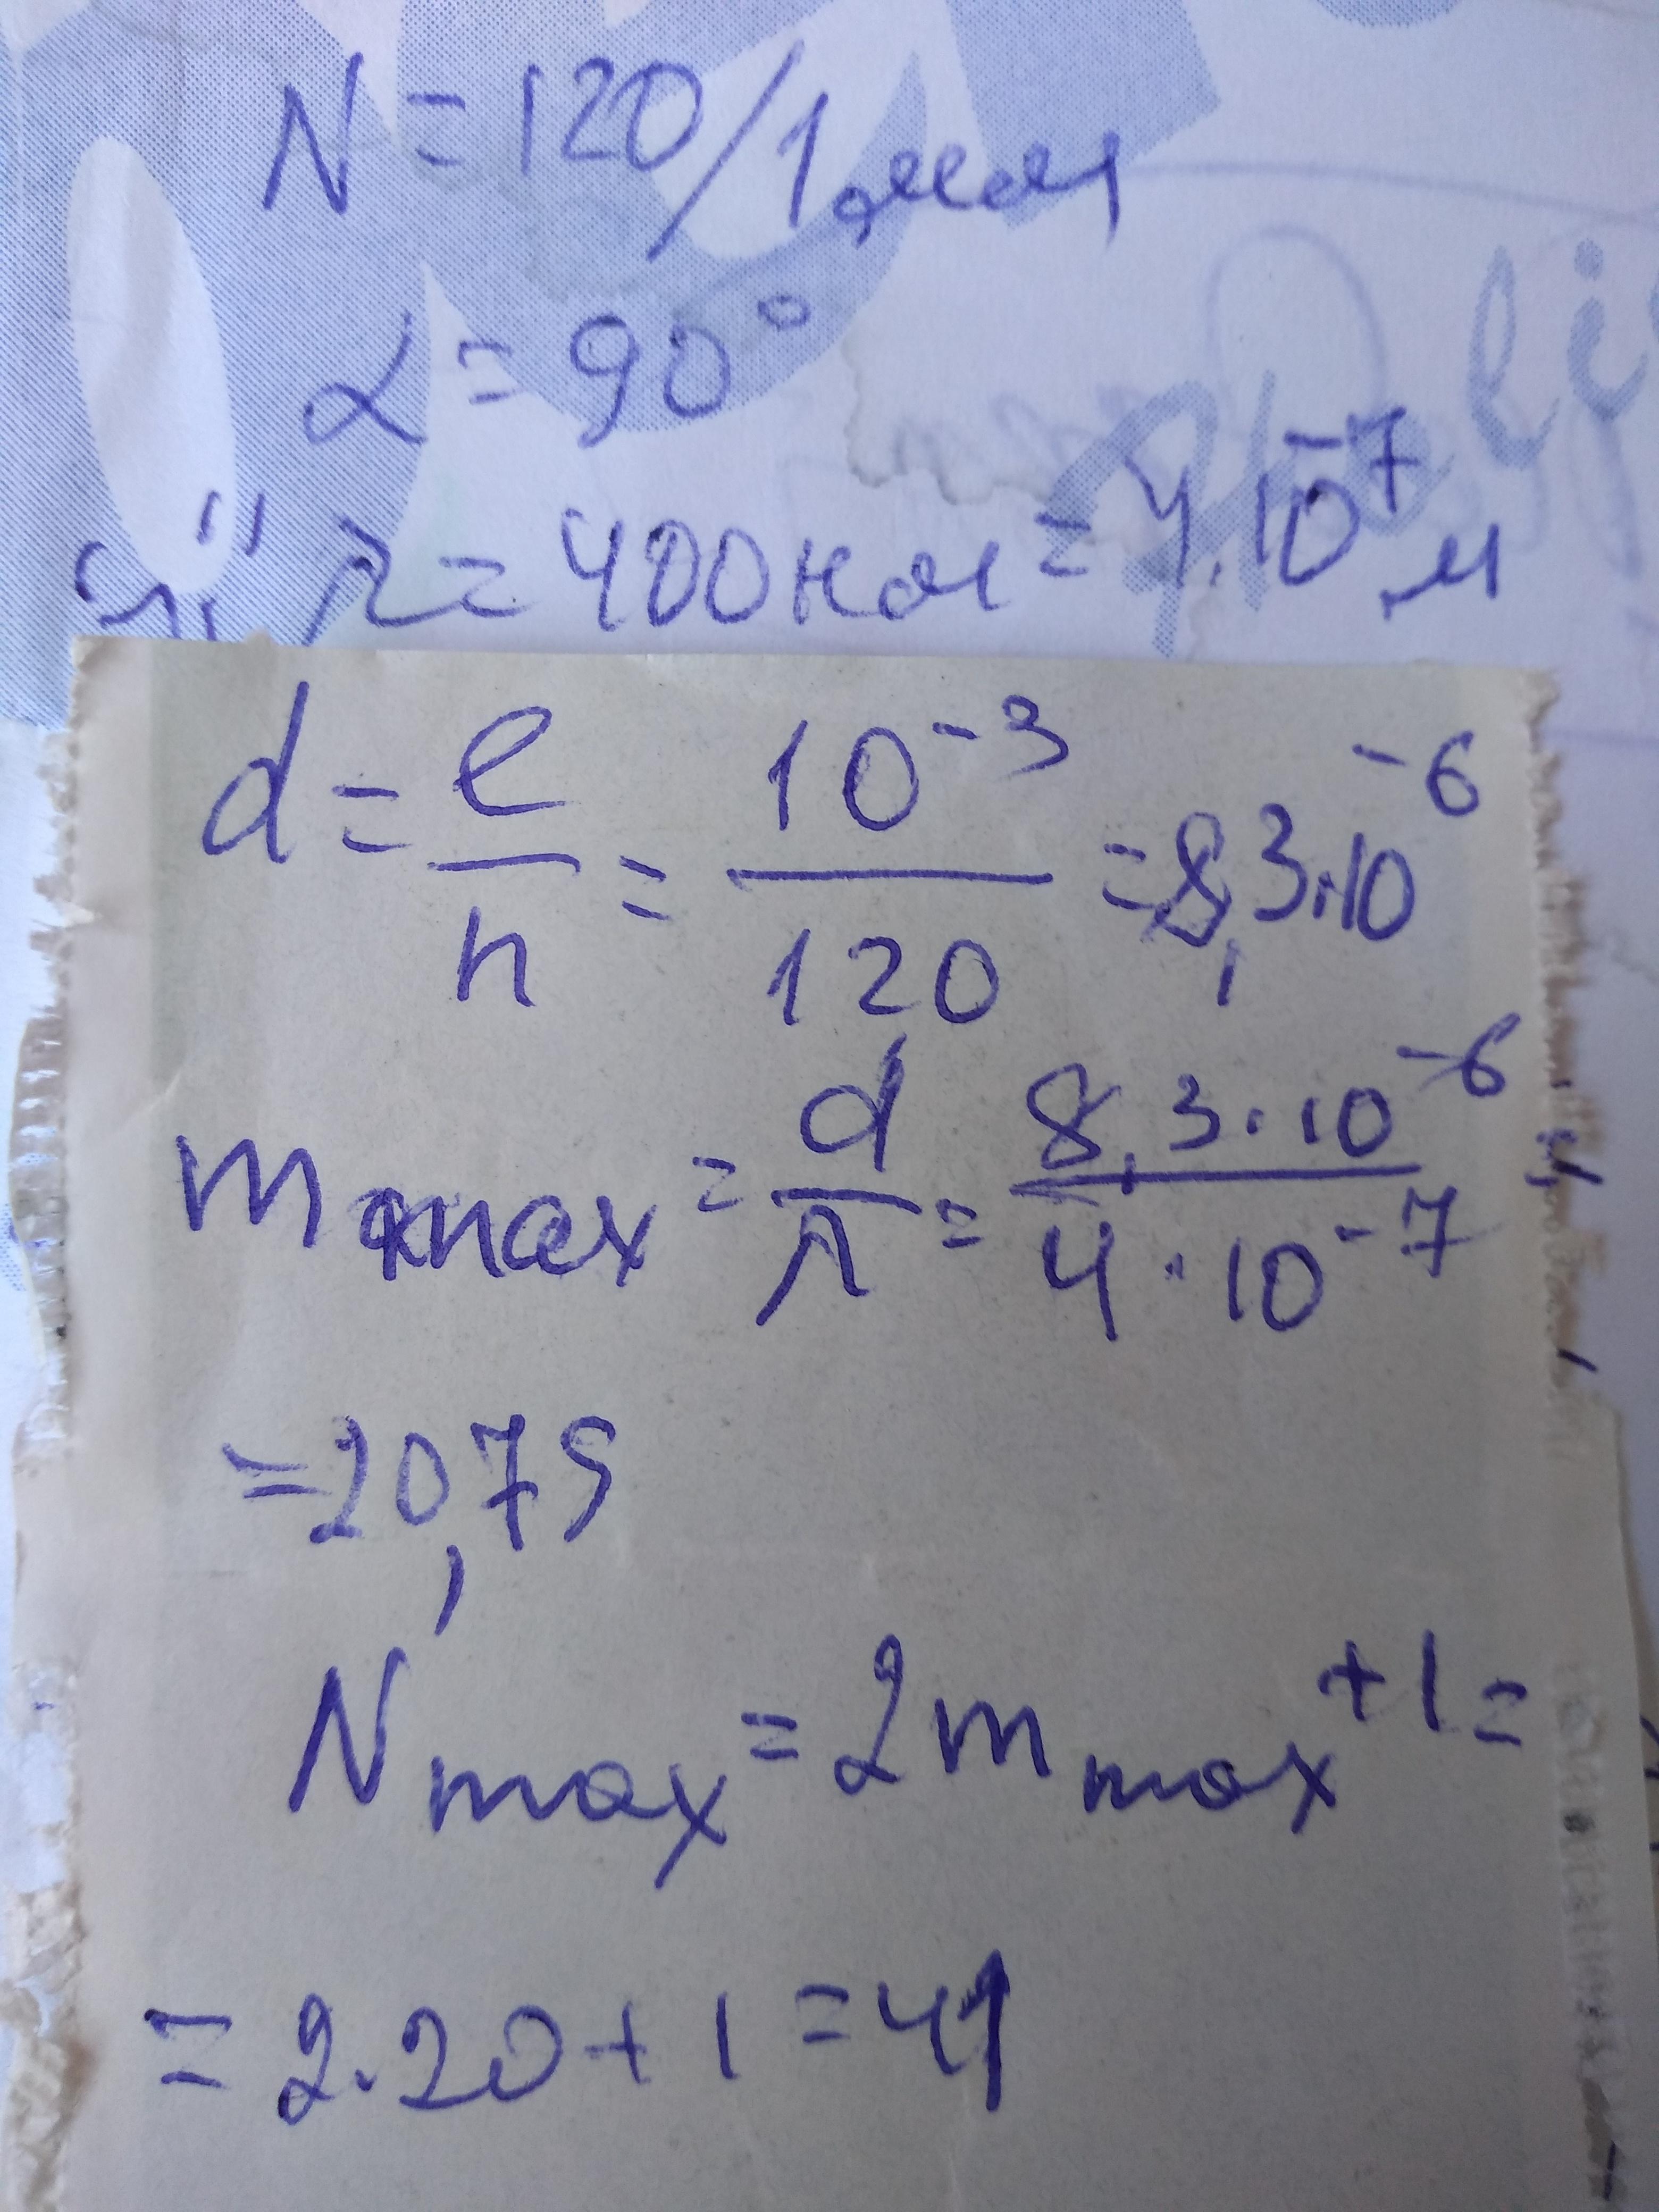 N = 120/1мм
α = 90°
λ = 400нм = 4.10⁻⁷м
d = e/n = 10⁻³/120 = 8,3·10⁻⁶
m max = d/λ = 8,3·10⁻⁶/4·10⁻⁷ =
= 20,75
N max = 2m max + 1 =
= 2.20 + 1 = 41